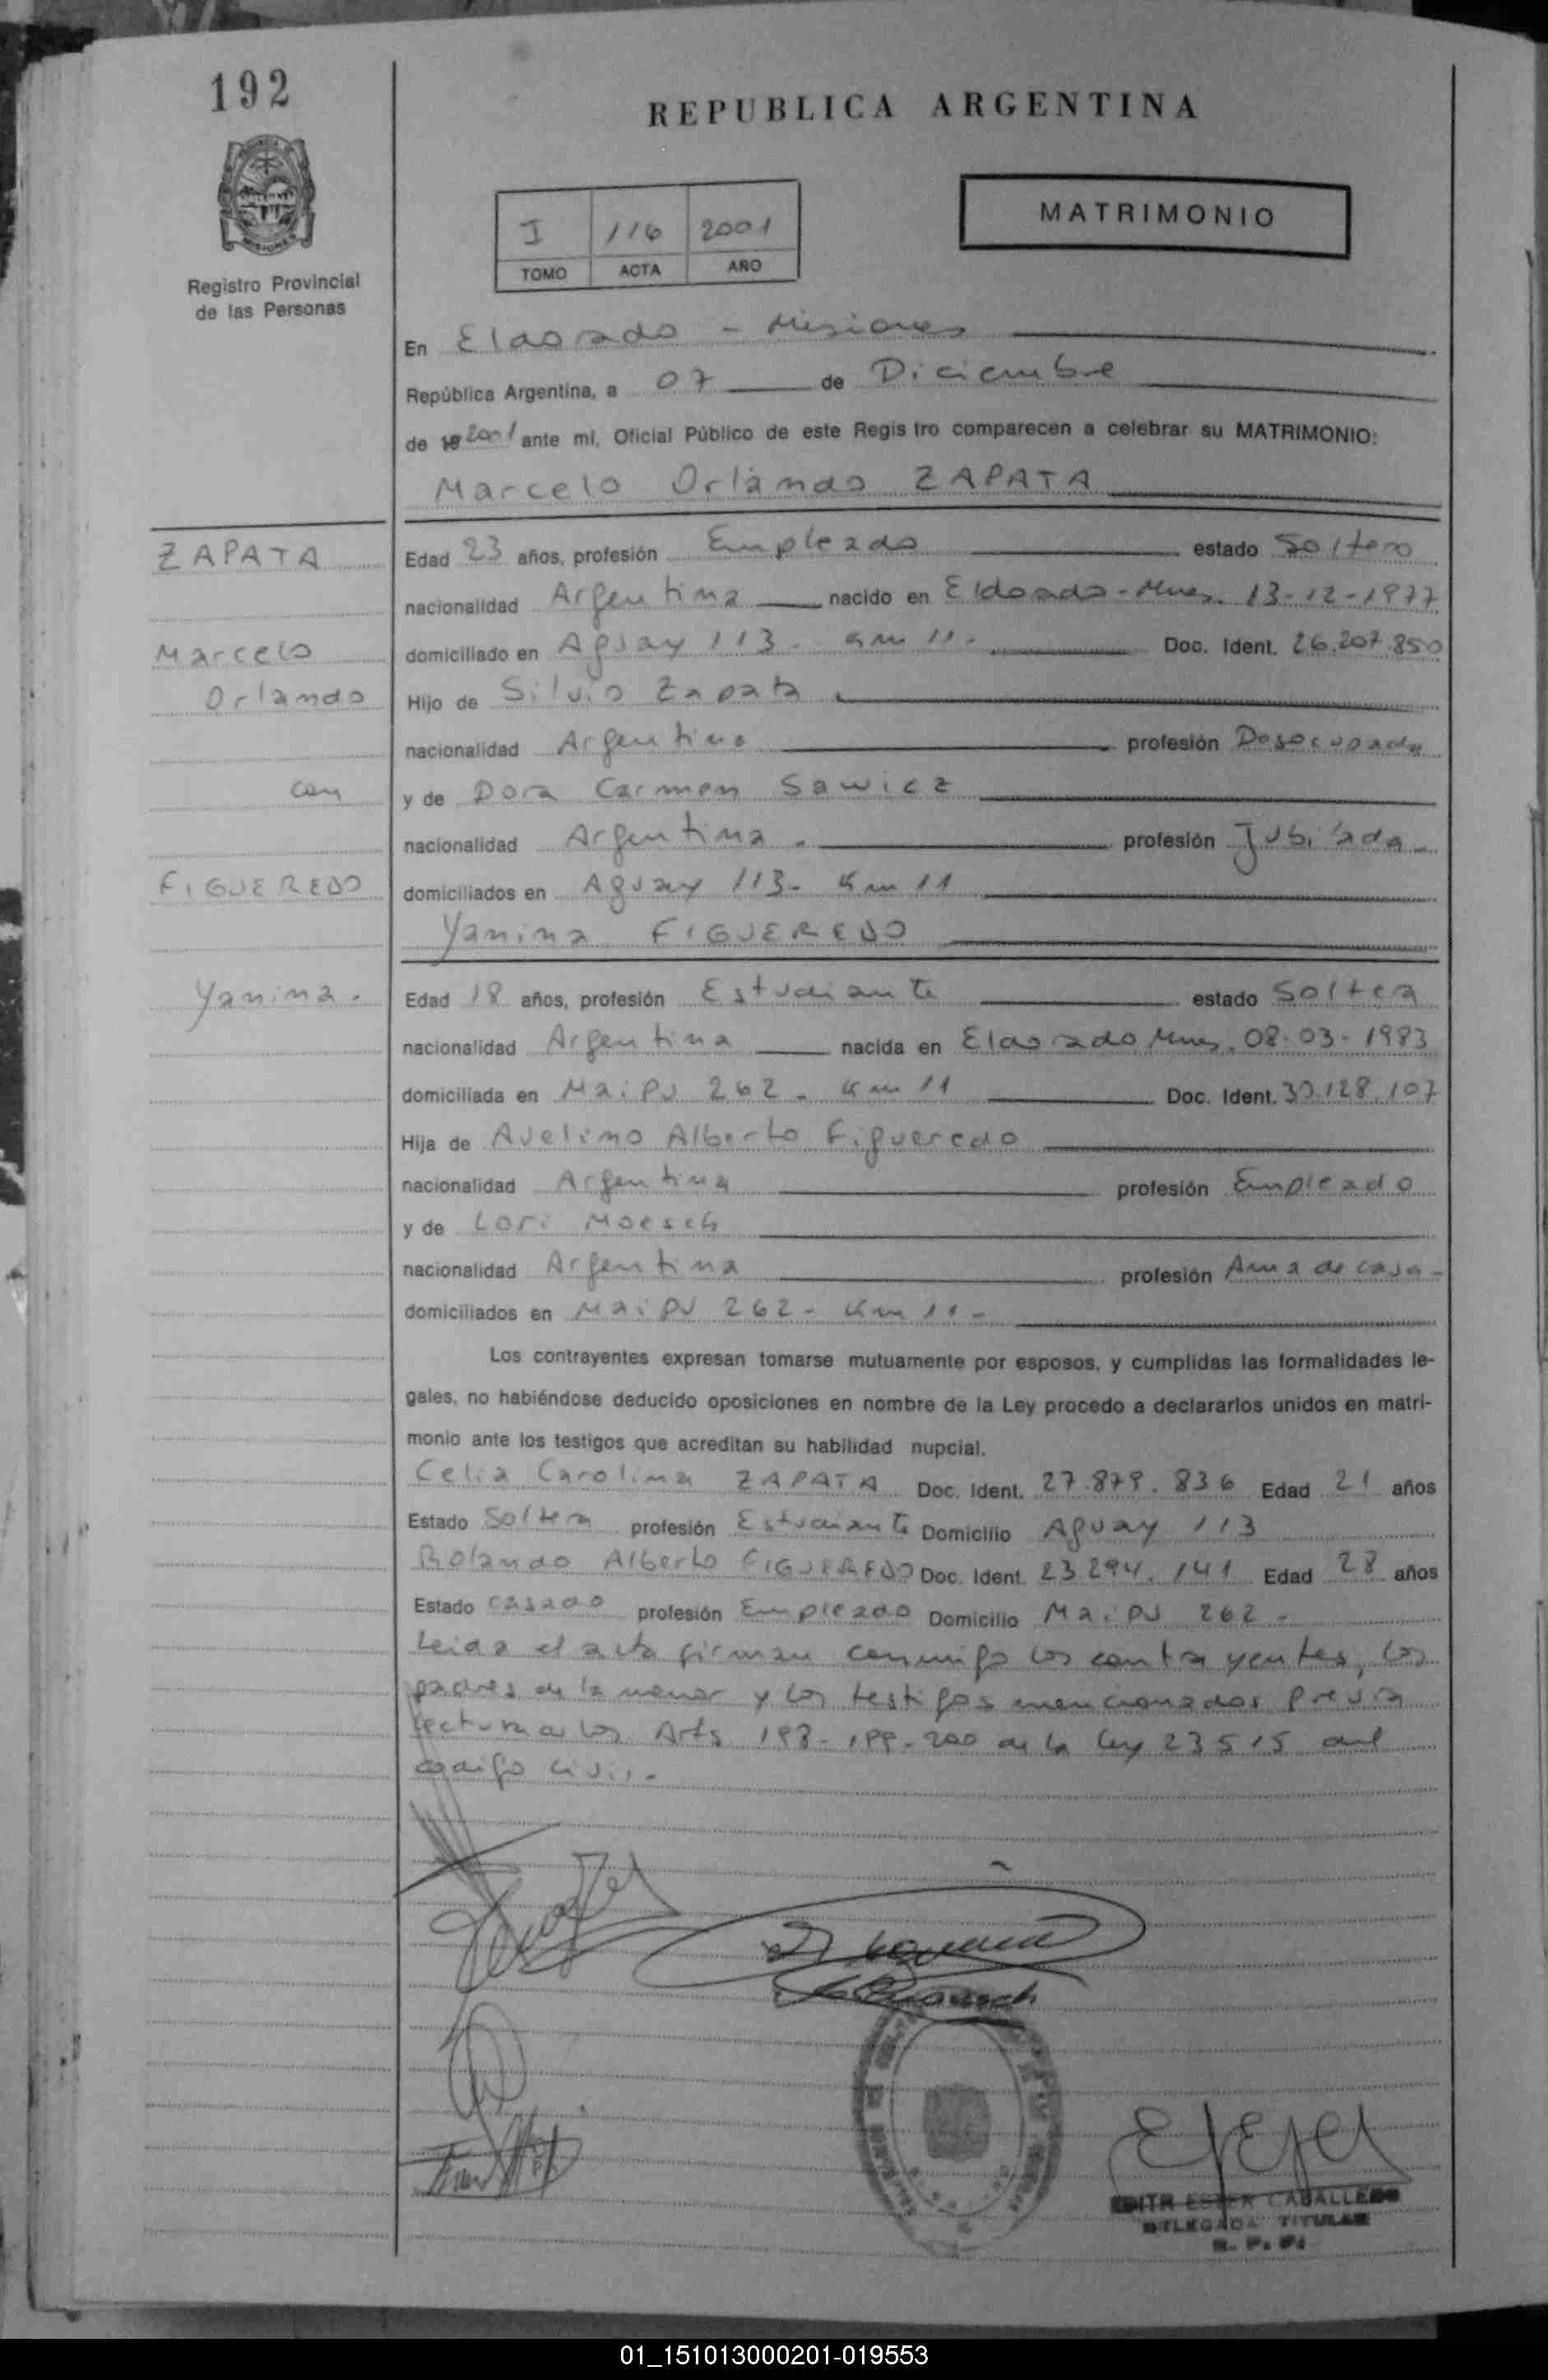 192
REPUBLICA ARGENTINA
MISIONES
Registro Provincial
de las Personas
I 116 2001
TOMO ACTA AÑO
MATRIMONIO
En Eldorado - Misiones
República Argentina, a 07 de Diciembre
de 19 2001 ante mí, Oficial Público de este Regis tro comparecen a celebrar su MATRIMONIO:
Marcelo Orlando ZAPATA
ZAPATA
Marcelo
Orlando
con
FIGUEREDO
Yanina.
Edad 23 años, profesión Empleado estado Soltero
nacionalidad Argentina nacido en Eldorado - Mnes. 13-12-1977
domiciliado en Aguay 113 - Km 11 - Doc. Ident. 26.207.850
Hijo de Silvio Zapata
nacionalidad Argentino profesión Desocupado
y de Dora Carmen Sawicz
nacionalidad Argentina. profesión Jubilada
domiciliados en Aguay 113 - Km 11
Yanina FIGUEREDO
Edad 18 años, profesión Estudiante estado Soltera
nacionalidad Argentina nacida en Eldorado Mnes. 08-03-1983
domiciliada en Maipu 262 - Km 11 Doc. Ident. 30.128.107
Hija de Avelino Alberto Figueredo
nacionalidad Argentina profesión Empleado
y de Lori Moesch
nacionalidad Argentina profesión Ama de casa -
domiciliados en Maipu 262 - Km 11 -
Los contrayentes expresan tomarse mutuamente por esposos, y cumplidas las formalidades le-
gales, no habiéndose deducido oposiciones en nombre de la Ley procedo a declararlos unidos en matri-
monio ante los testigos que acreditan su habilidad nupcial.
Celia Carolina ZAPATA Doc. Ident. 27.879.836 Edad 21 años
Estado Soltera profesión Estudiante Domicilio Aguay 113
Rolando Alberto FIGUEREDO Doc. Ident. 23.294.141 Edad 28 años
Estado casado profesión Empleado Domicilio Maipu 262 -
Leida el acta firman conmigo los contrayentes, los
padres de la menor y los testigos mencionados previa
lectura de los Arts 198-199-200 de la ley 23515 del
codigo civil -
EDITH ESTER CABALLERO
DELEGADA TITULAR
R. P. P.
01_151013000201-019553